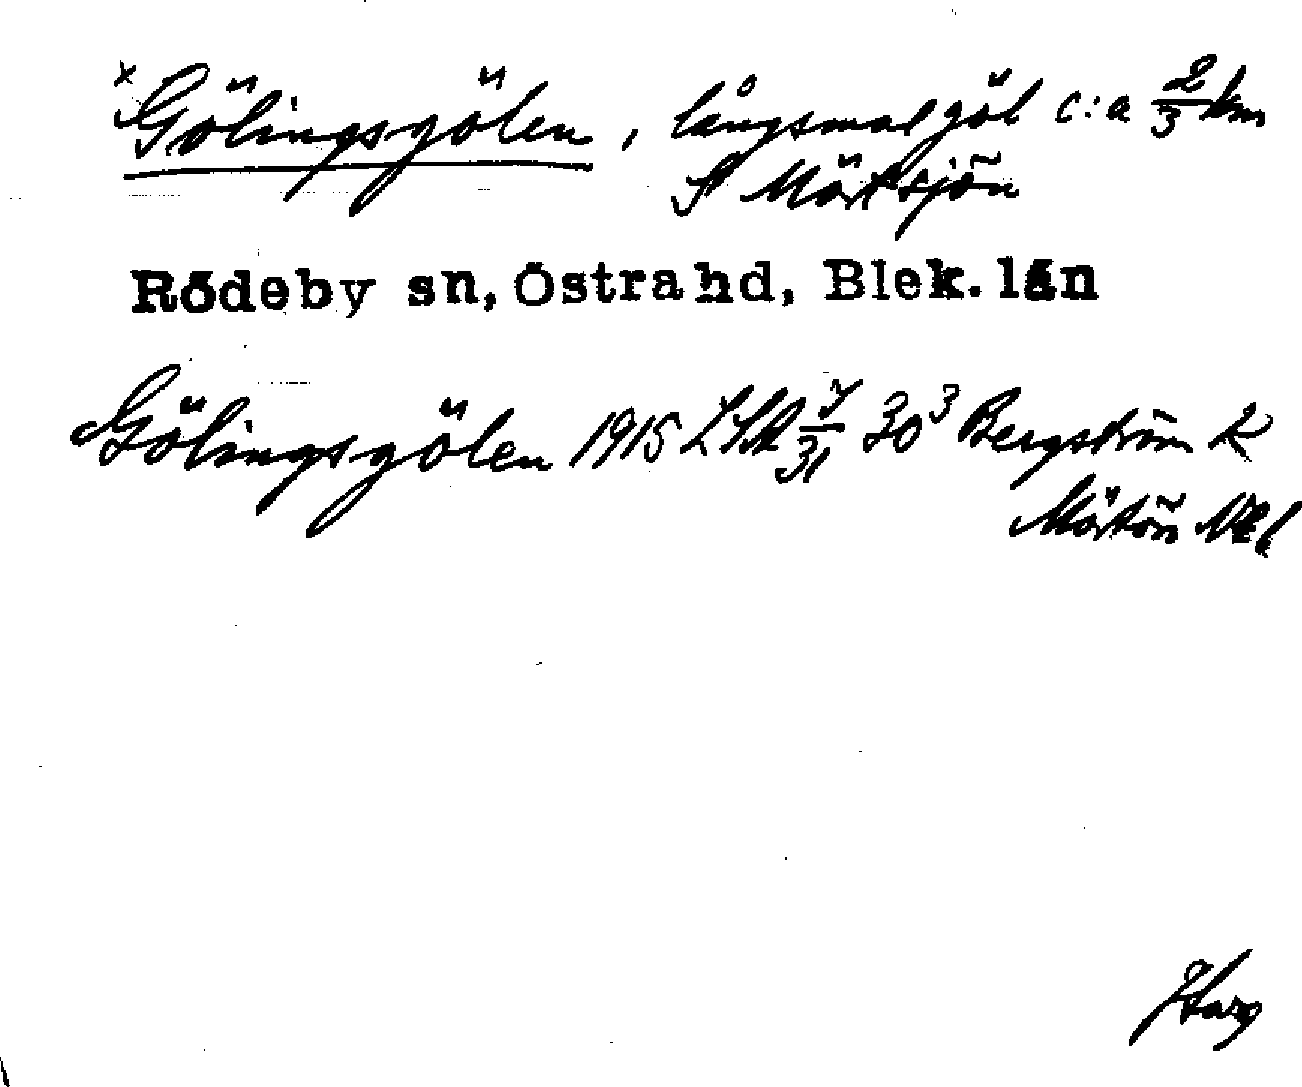 × Gölingsgölen, långsmal göl c:a 2/3 km
S Mörtsjön
Rödeby sn, Östra hd, Blek. län
Gölingsgölen 1915 LSA 30³ Bergström K